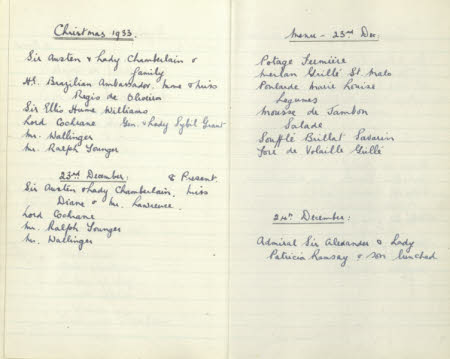 Christmas 1933.
Sir Austen & Lady Chamberlain &
family
H.E. Brazilian Ambassador, Mme & Miss
Regis de Oliveira
Sir Ellis Hume Williams
Lord Cochrane Gen. & Lady Sybil Grant
Mr. Wallinger
Mr. Ralph Younger
23rd December: 8 Present.
Sir Austen & Lady Chamberlain, Miss
Diane & Mr. Lawrence.
Lord Cochrane
Mr. Ralph Younger
Mr. Wallinger
Menu - 23rd Dec:
Potage Fermière
Merlan Grillé St. Malo
Poularde Marie Louise
Legumes
Mousse de Jambon
Salade
Soufflé Brillat Savarin
Foie de Volaille Grillé
24th December:
Admiral Sir Alexander & Lady
Patricia Ramsay & son lunched